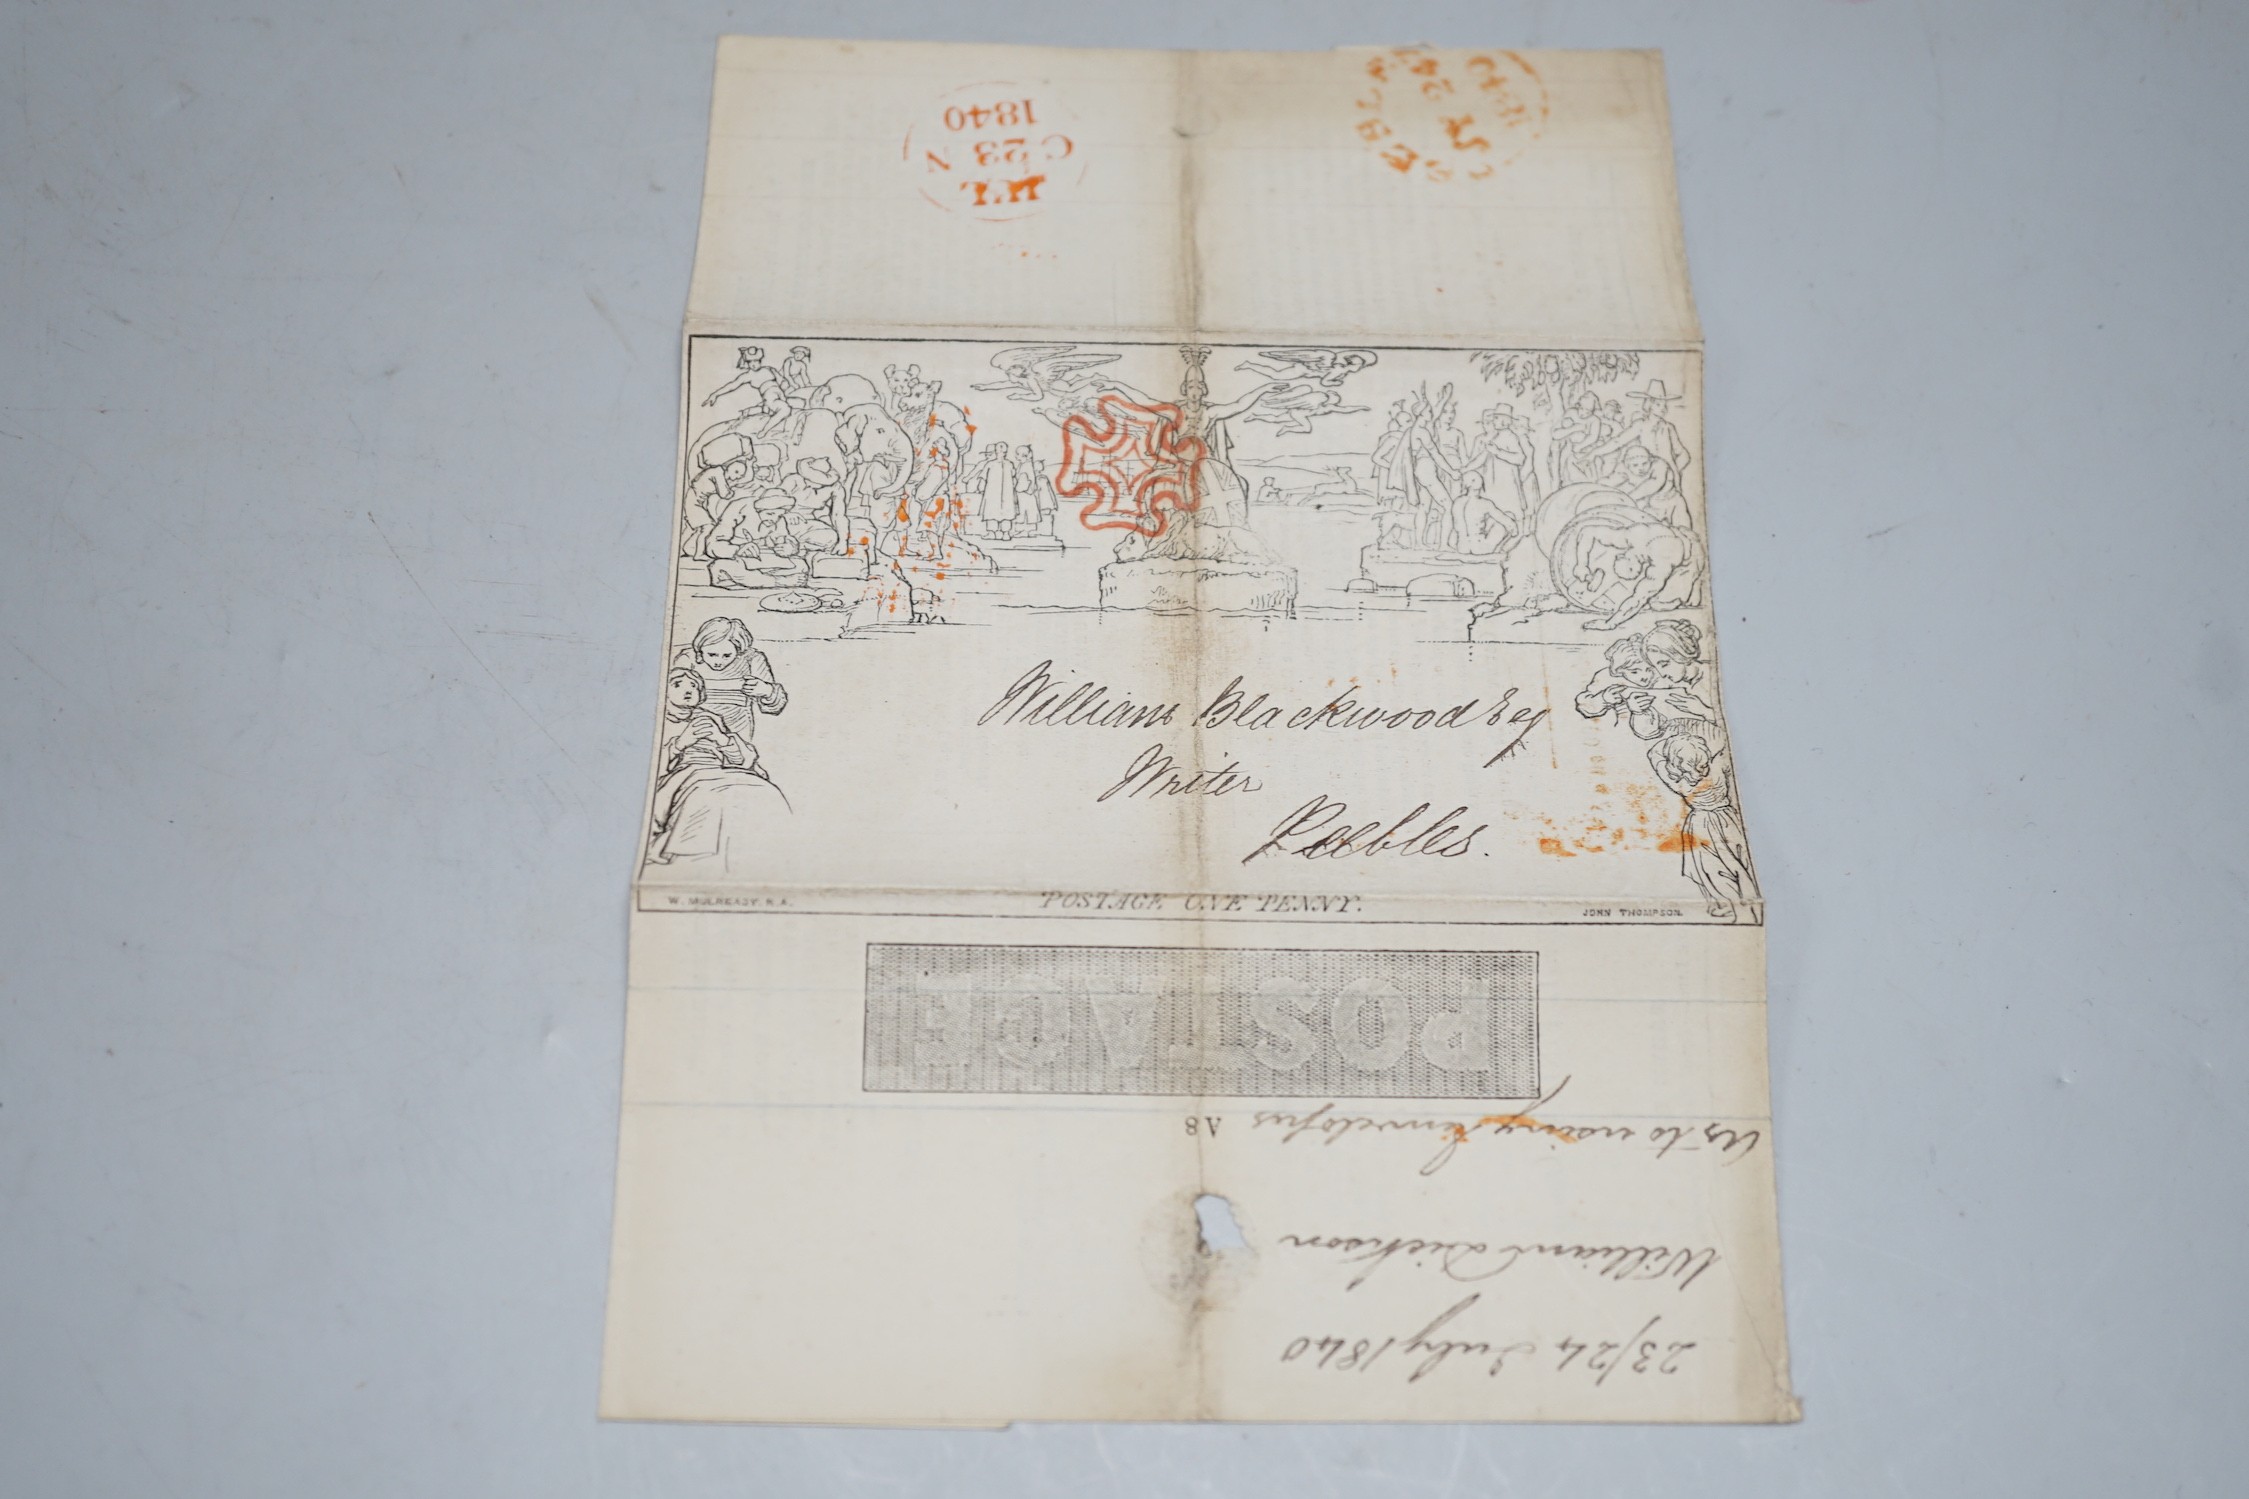 JUL
C 23 N
1840
PEEBLES
JY 24
1840
William Blackwood Esq
Writer
Peebles.
W. MULREADY. R.A.
POSTAGE ONE PENNY.
JOHN THOMPSON.
POSTAGE
A 8
23/24 July 1840
William Dickson
As to using envelopes